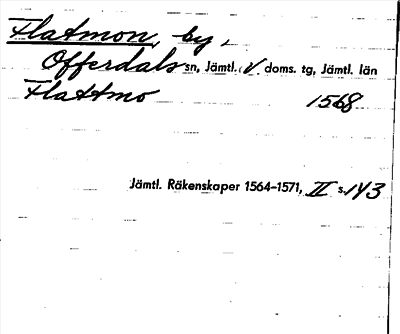 Flatmon, by,
Offerdals sn, Jämtl. V doms. tg, Jämtl. län
Flattmo 1568
Jämtl. Räkenskaper 1564–1571, II s. 143